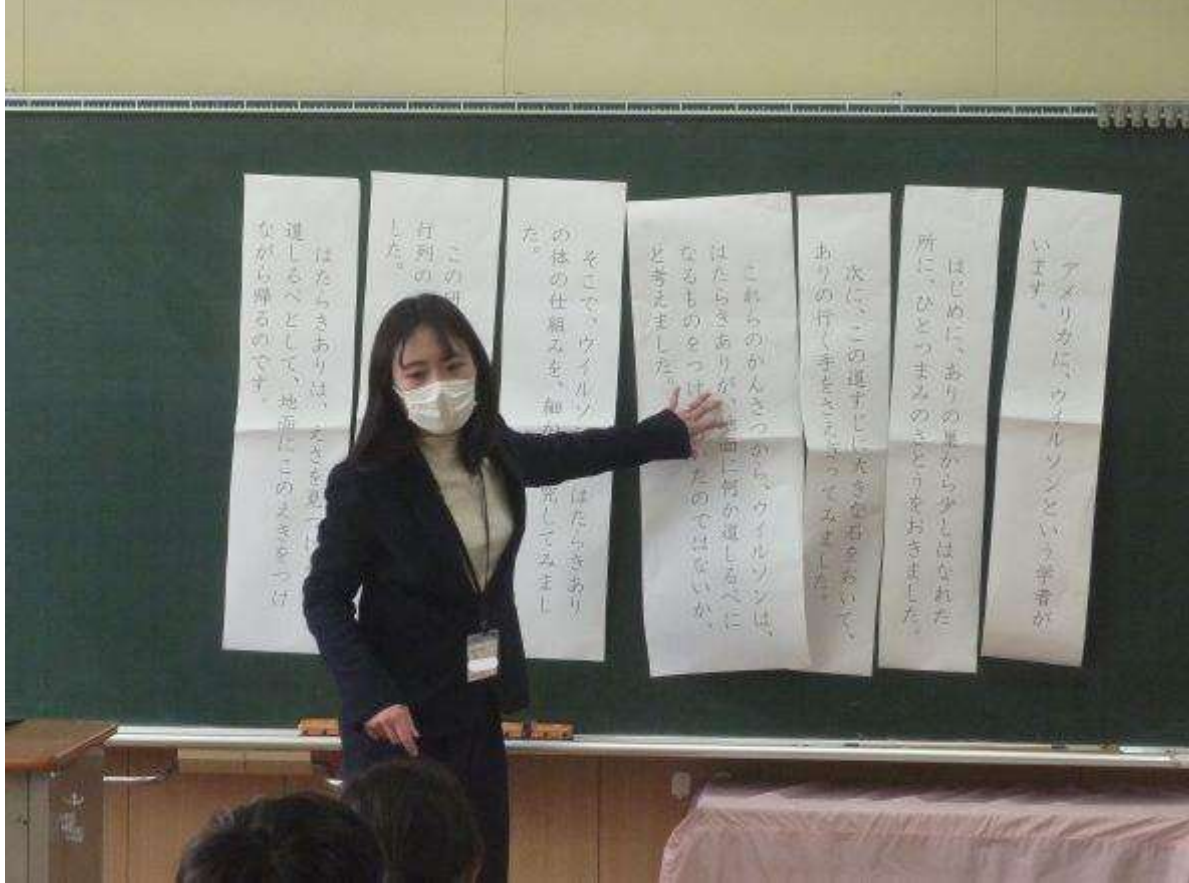 アメリカに、ウイルソンという学者が
います。
はじめに、ありの巣から少しはなれた
所に、ひとつまみのさとうをおきました。
次に、この道すじに大きな石をおいて、
ありの行く手をさえぎってみました。
これらのかんさつから、ウイルソンは、
はたらきありが、地面に何か道しるべに
なるものをつけ たのではないか、
と考えました。
そこで、ウイルソ はたらきあり
の体の仕組みを、細か 究してみまし
た。
この研
行列の
した。
はたらきありは、えさを見つけ
道しるべとして、地面にこのえきをつけ
ながら帰るのです。